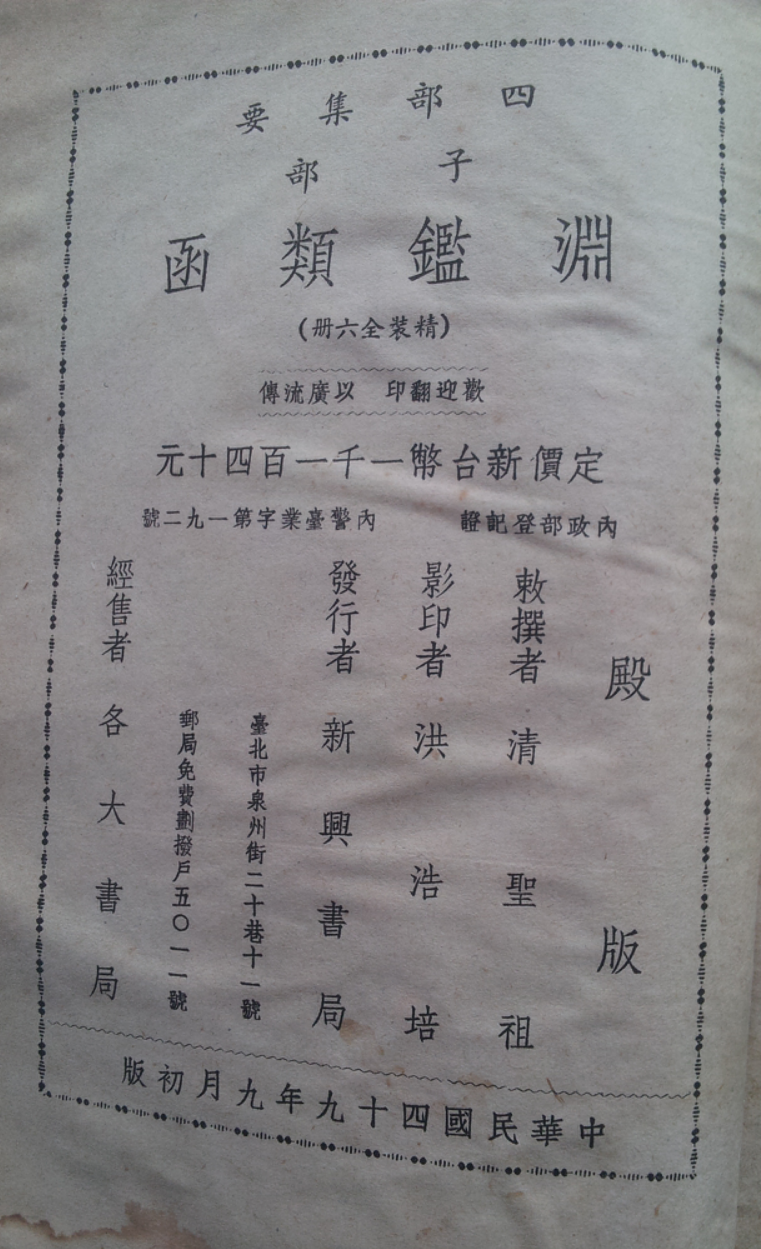 四部集要
子部
淵鑑類函
(精裝全六冊)
歡迎翻印 以廣流傳
定價新台幣一千一百四十元
內政部登記證 內警臺業字第一九二號
殿版
敕撰者 清聖祖
影印者 洪浩培
發行者 新興書局
臺北市泉州街二十巷十一號
郵局免費劃撥戶五〇一一號
經售者 各大書局
中華民國四十九年九月初版